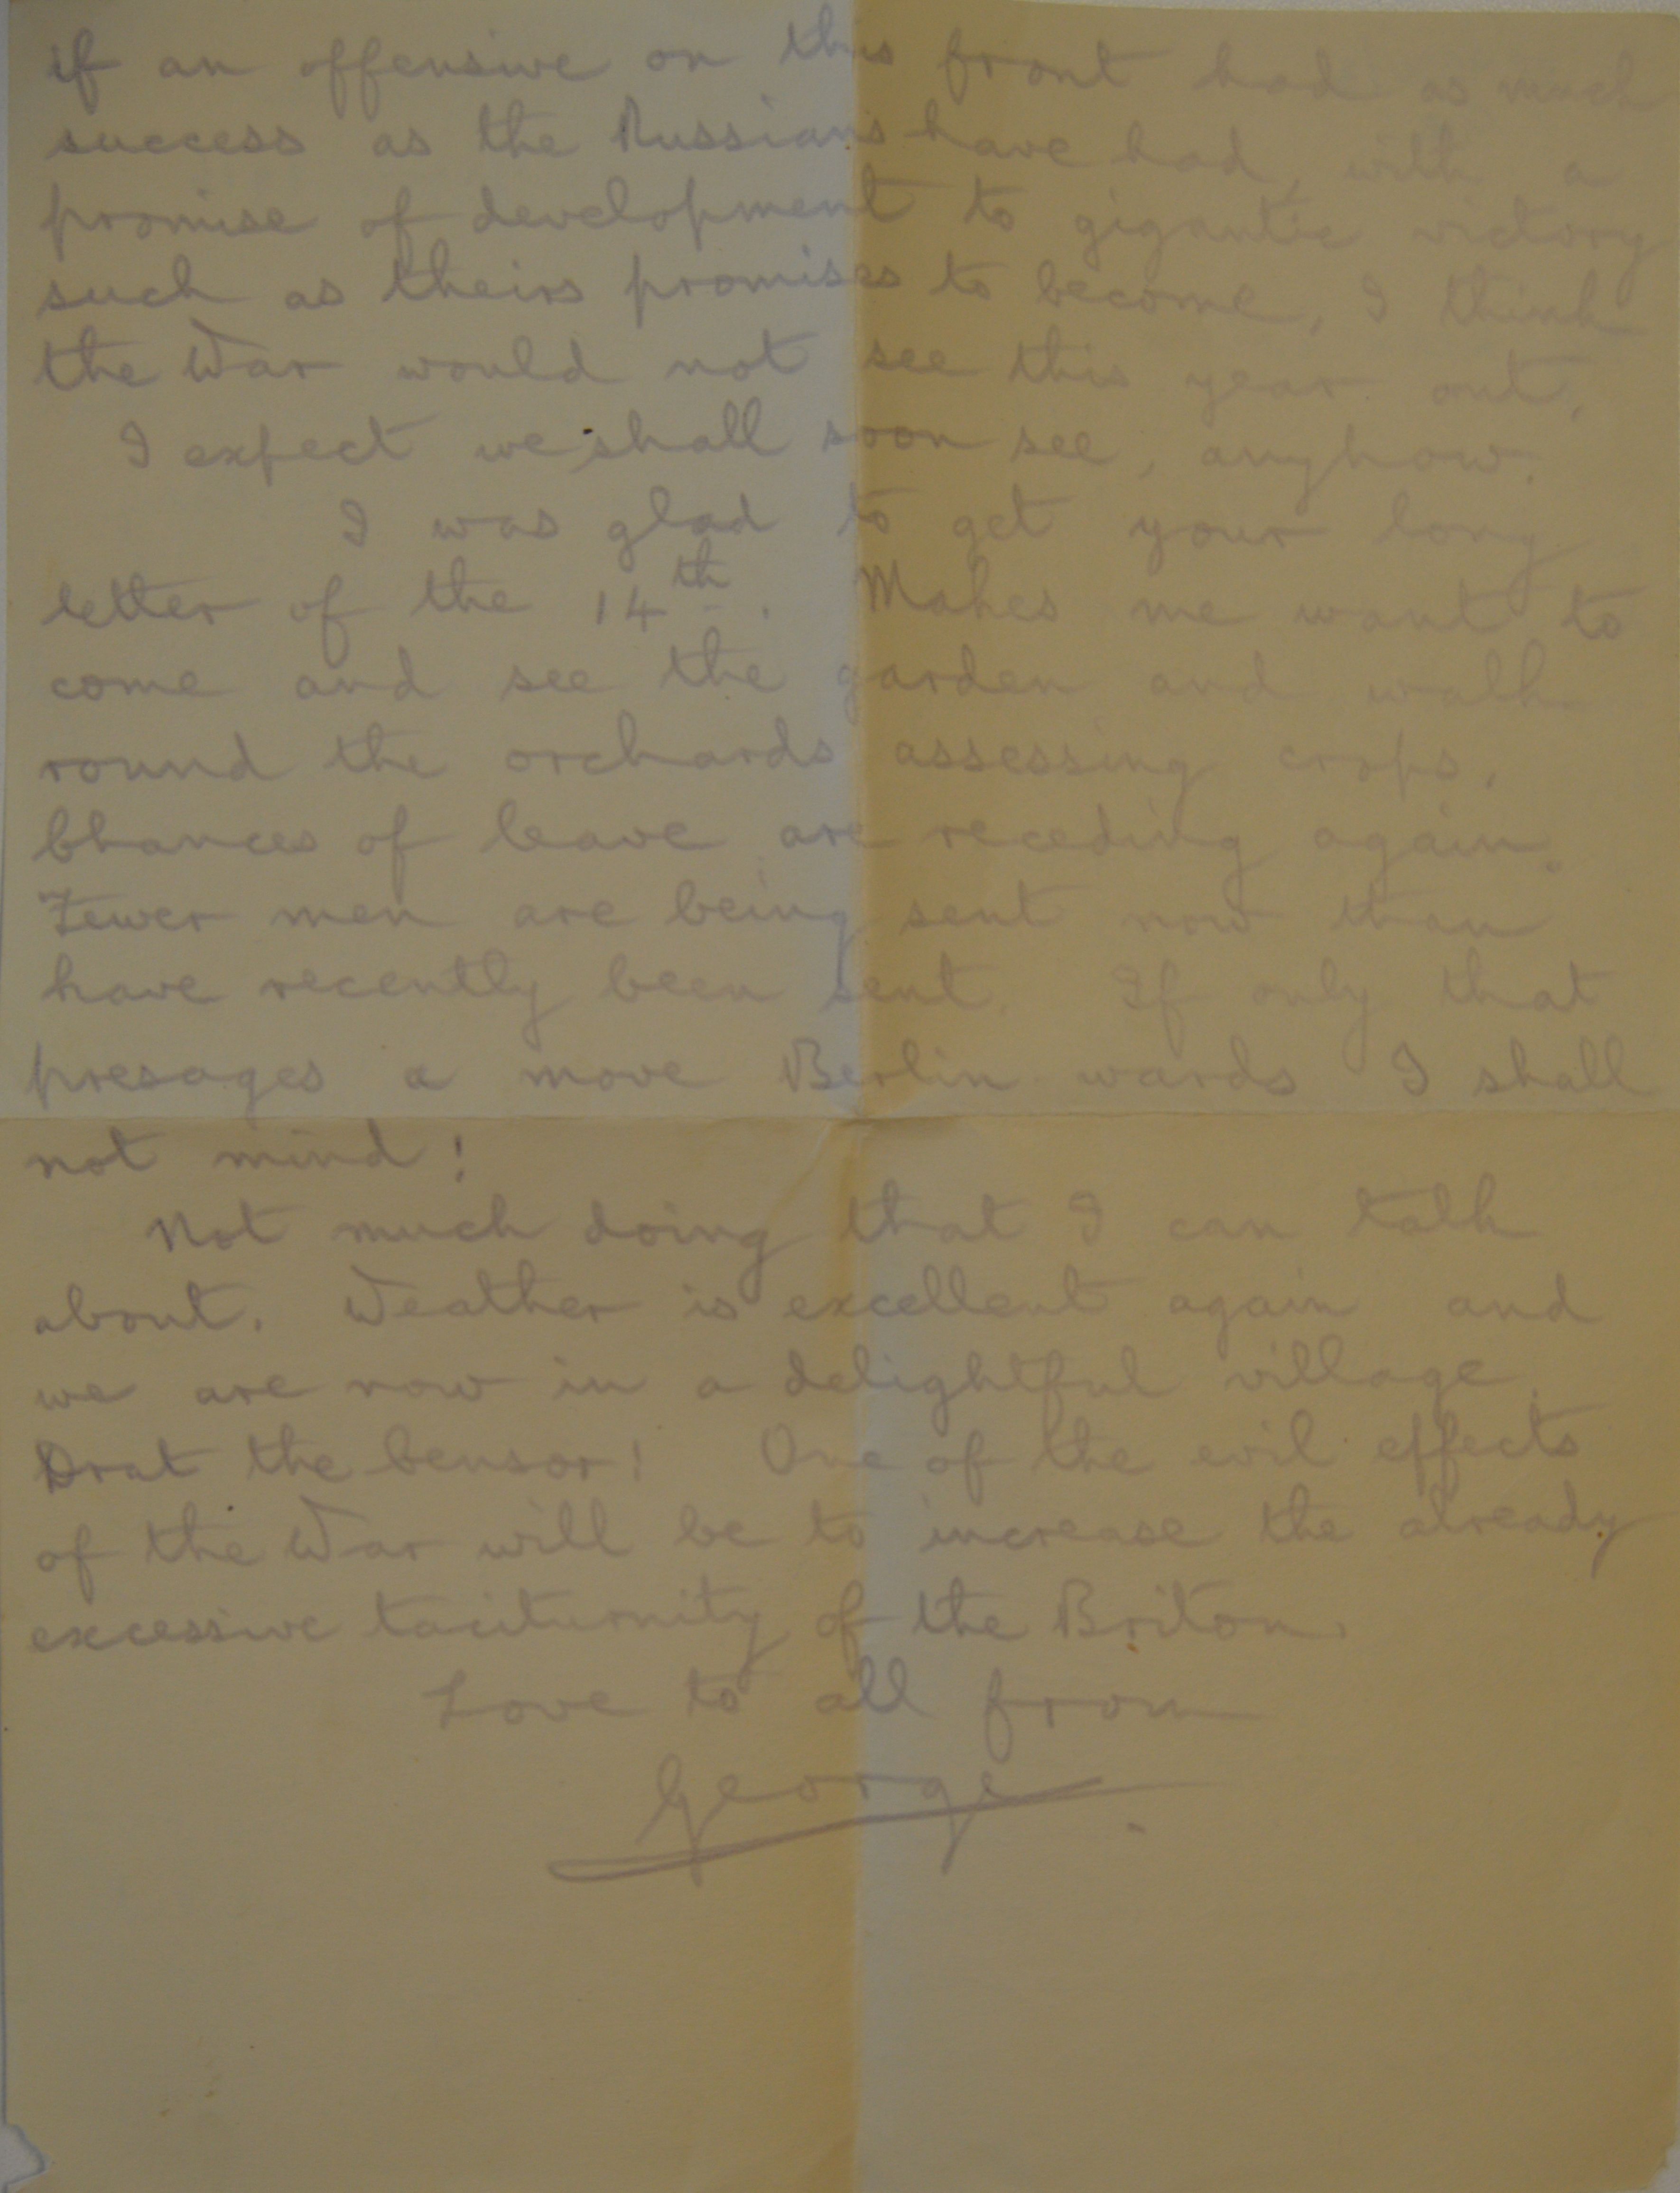 if an offensive on this front had as much
success as the Russians have had, with a
promise of development to gigantic victory
such as theirs promises to become, I think
the War would not see this year out.
I expect we shall soon see, anyhow.
I was glad to get your long
letter of the 14th. Makes me want to
come and see the garden and walk
round the orchards assessing crops.
Chances of leave are receding again.
Fewer men are being sent now than
have recently been sent. If only that
presages a move Berlin-wards I shall
not mind!
Not much doing that I can talk
about. Weather is excellent again and
we are now in a delightful village.
Drat the Censor! One of the evil effects
of the War will be to increase the already
excessive taciturnity of the Briton.
Love to all from
George.